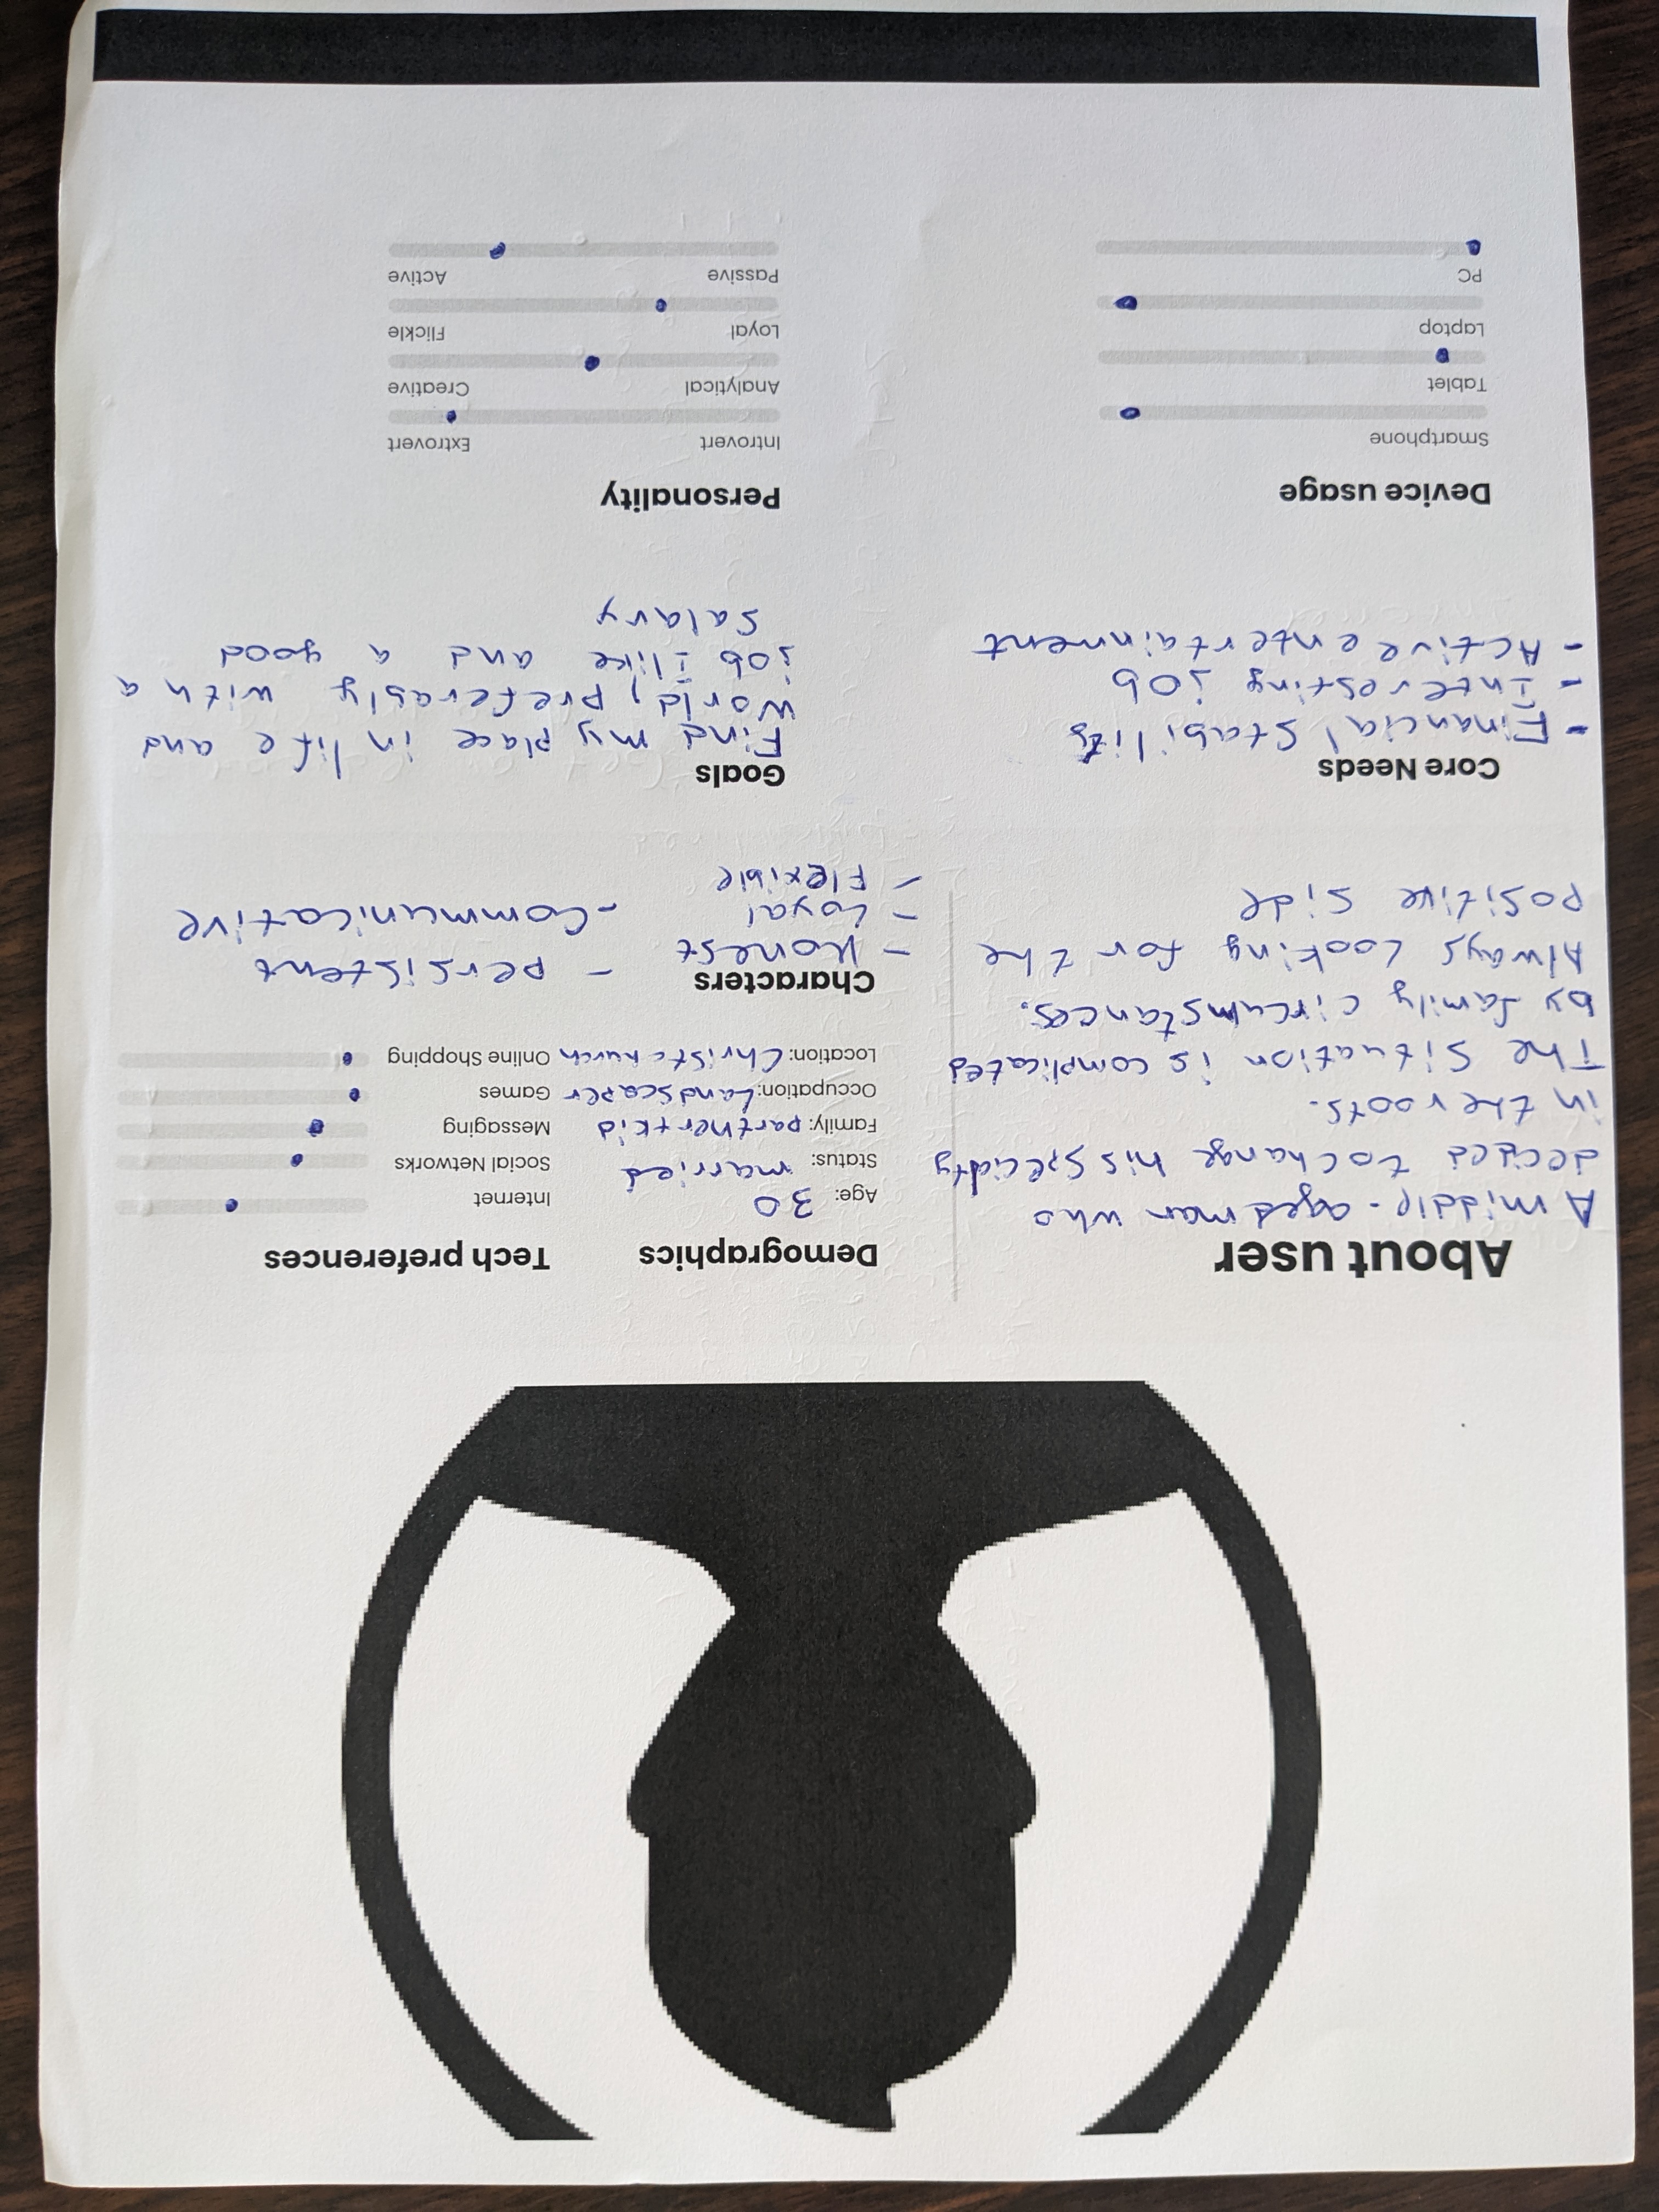 About user
A middle-aged man who
decided to change his specialty
in the roots.
The Situation is complicated
by family circumstances.
Always Looking for the
positive side
Demographics
Age: 30
Status: married
Family: partner+kid
Occupation: Landscaper
Location: Christchurch
Tech preferences
Internet
Social Networks
Messaging
Games
Online Shopping
Characters
- Honest
- Loyal
- Flexible
- persistent
- Communicative
Core Needs
- Financial Stability
- Interesting job
- Active entertainment
Goals
Find my place in life and
World, preferably with a
job I like and a good
Salary
Device usage
Smartphone
Tablet
Laptop
PC
Personality
Introvert Extrovert
Analytical Creative
Loyal Flickle
Passive Active